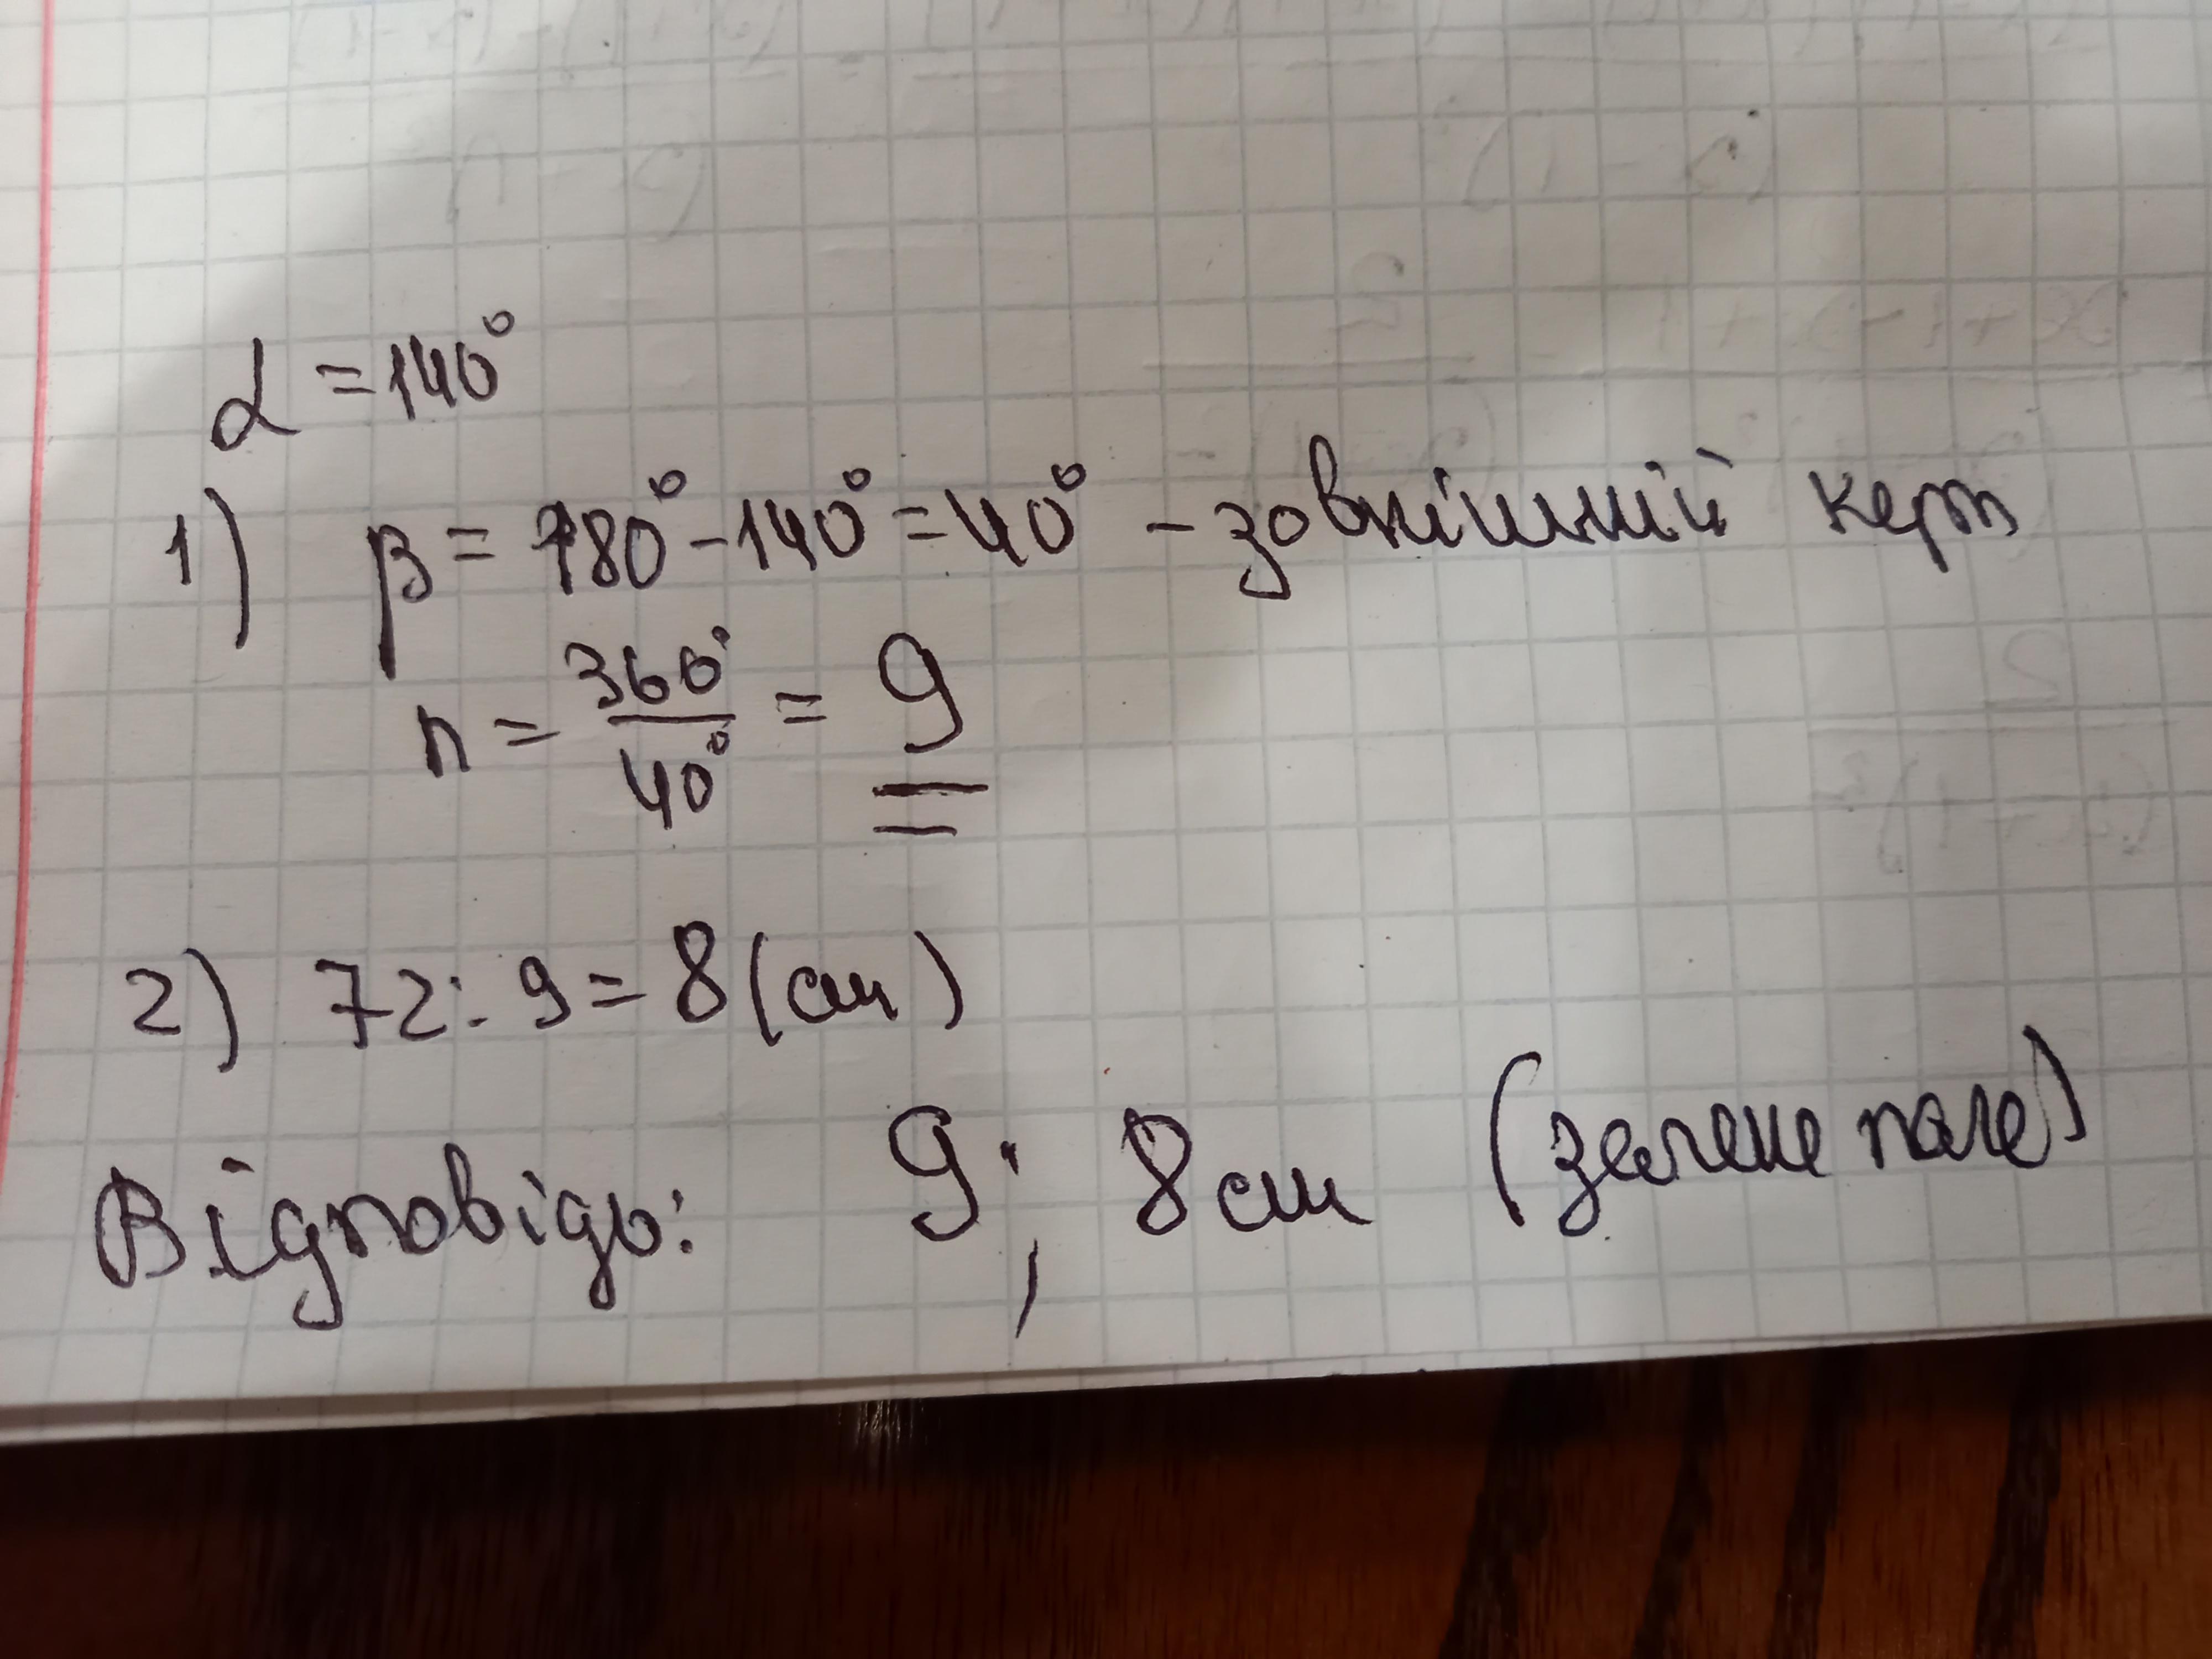 α = 140°
1) β = 180° - 140° = 40° - зовнішній
n = 360° / 40° = 9
2) 72 : 9 = 8 (см)
Відповідь: 9; 8 см (зелене поле)